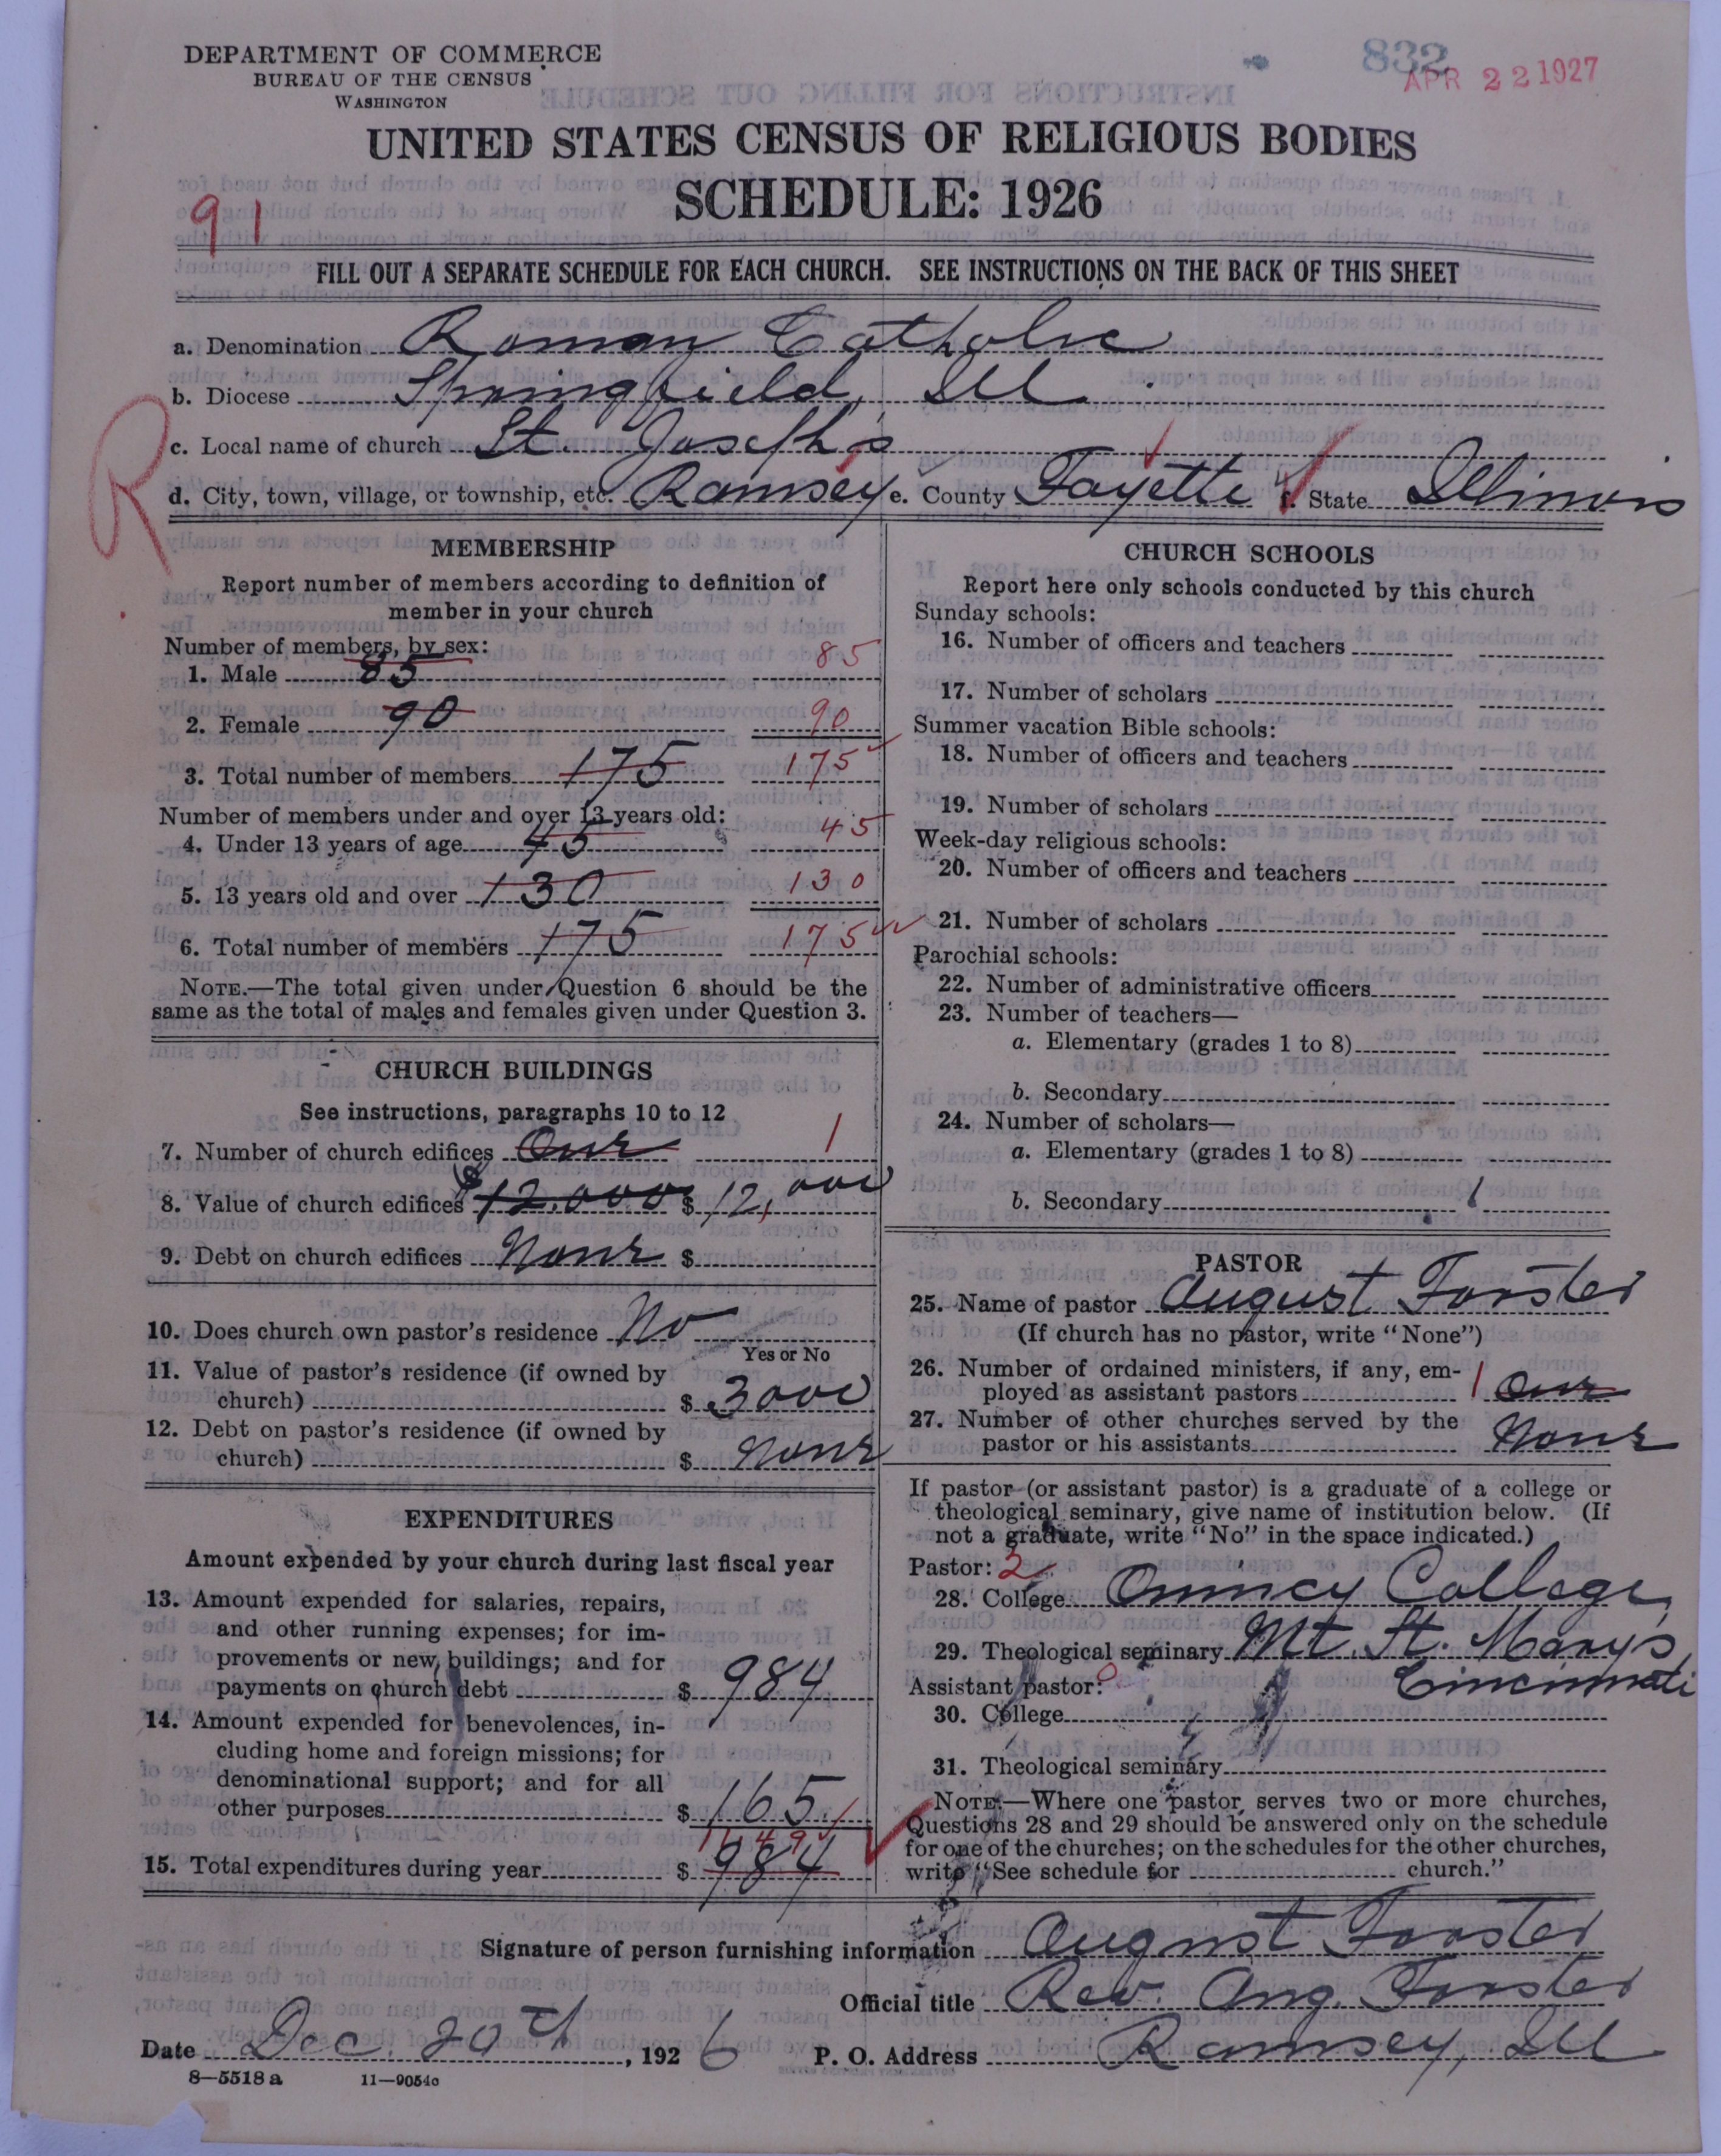 DEPARTMENT OF COMMERCE
BUREAU OF THE CENSUS
WASHINGTON
832
APR 22 1927
UNITED STATES CENSUS OF RELIGIOUS BODIES
SCHEDULE: 1926
91
FILL OUT A SEPARATE SCHEDULE FOR EACH CHURCH. SEE INSTRUCTIONS ON THE BACK OF THIS SHEET
a. Denomination Roman Catholic
b. Diocese Springfield, Ill
c. Local name of church St. Joseph's
R
d. City, town, village, or township, etc. Ramsey e. County Fayette f. State Illinois
MEMBERSHIP
Report number of members according to definition of
member in your church
Number of members, by sex:
1. Male 85 85
2. Female 90 90
3. Total number of members 175 175
Number of members under and over 13 years old:
4. Under 13 years of age 45 45
5. 13 years old and over 130 130
6. Total number of members 175 175
NOTE.—The total given under Question 6 should be the
same as the total of males and females given under Question 3.
CHURCH BUILDINGS
See instructions, paragraphs 10 to 12
7. Number of church edifices One 1
8. Value of church edifices $12,000 $ 12,000
9. Debt on church edifices None $
10. Does church own pastor's residence No
Yes or No
11. Value of pastor's residence (if owned by
church) $ 3000
12. Debt on pastor's residence (if owned by
church) $ None
EXPENDITURES
Amount expended by your church during last fiscal year
13. Amount expended for salaries, repairs,
and other running expenses; for im-
provements or new buildings; and for
payments on church debt $ 984
14. Amount expended for benevolences, in-
cluding home and foreign missions; for
denominational support; and for all
other purposes $ 165
1149
15. Total expenditures during year $ 984
CHURCH SCHOOLS
Report here only schools conducted by this church
Sunday schools:
16. Number of officers and teachers
17. Number of scholars
Summer vacation Bible schools:
18. Number of officers and teachers
19. Number of scholars
Week-day religious schools:
20. Number of officers and teachers
21. Number of scholars
Parochial schools:
22. Number of administrative officers
23. Number of teachers—
a. Elementary (grades 1 to 8)
b. Secondary
24. Number of scholars—
a. Elementary (grades 1 to 8)
b. Secondary
PASTOR
25. Name of pastor August Forster
(If church has no pastor, write "None")
26. Number of ordained ministers, if any, em-
ployed as assistant pastors 1 One
27. Number of other churches served by the
pastor or his assistants None
If pastor (or assistant pastor) is a graduate of a college or
theological seminary, give name of institution below. (If
not a graduate, write "No" in the space indicated.)
Pastor: 2
28. College Quincy College,
29. Theological seminary Mt. St. Mary's
Assistant pastor: 0 Cincinnati
30. College
31. Theological seminary
NOTE.—Where one pastor serves two or more churches,
Questions 28 and 29 should be answered only on the schedule
for one of the churches; on the schedules for the other churches,
write "See schedule for church."
Signature of person furnishing information August Forster
Official title Rev. Aug. Forster
Date Dec. 20th, 1926 P. O. Address Ramsey, Ill
8—5518 a 11—9054c